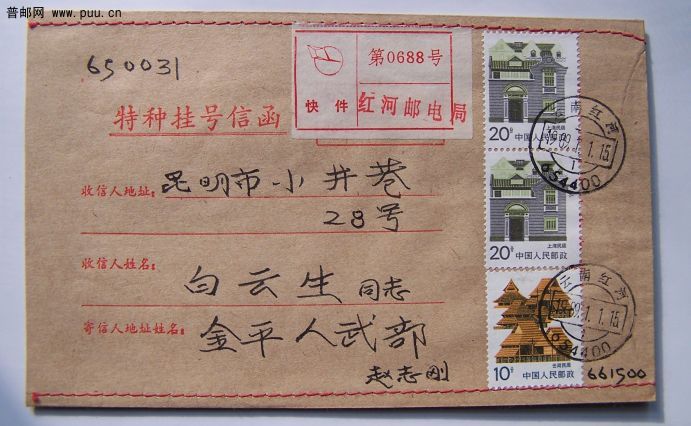 普邮网 www.puu.cn
650031
第0688号
快件
红河邮电局
特种挂号信函
收信人地址:
昆明市小井巷
28号
收信人姓名:
白云生同志
寄信人地址姓名:
金平人武部
赵志刚
661500
上海民居
20分 中国人民邮政
上海民居
20分 中国人民邮政
云南民居
10分 中国人民邮政
云南红河
654400
云南红河
654400